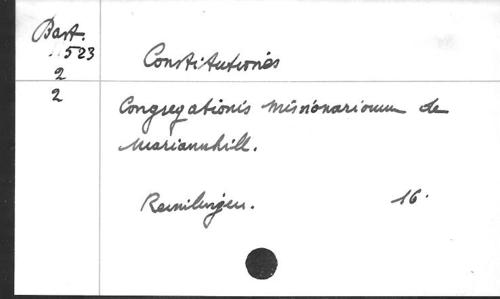 Bast.
523
2
2
Constitutiones
Congregationis Missionariorum de
Mariannhill.
Reimlingen. 16.